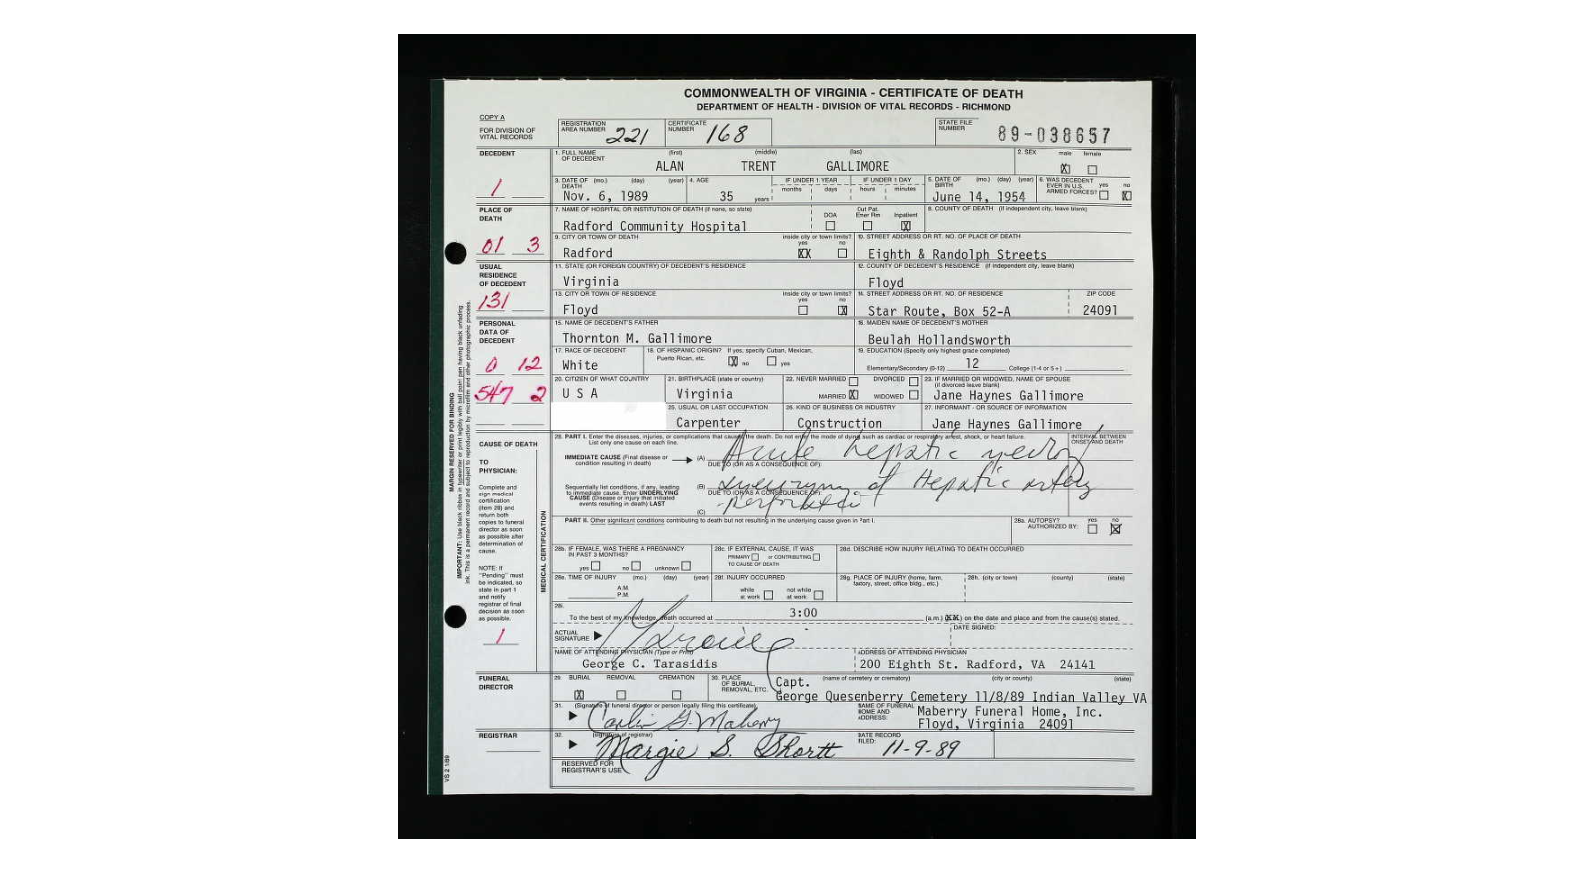 COMMONWEALTH OF VIRGINIA - CERTIFICATE OF DEATH
DEPARTMENT OF HEALTH - DIVISION OF VITAL RECORDS - RICHMOND
COPY A
FOR DIVISION OF VITAL RECORDS
REGISTRATION AREA NUMBER 221
CERTIFICATE NUMBER 168
STATE FILE NUMBER 89-038657
DECEDENT
1. FULL NAME OF DECEDENT (first) (middle) (last)
ALAN TRENT GALLIMORE
2. SEX male female X
1
3. DATE OF DEATH (mo.) (day) (year) Nov. 6, 1989
4. AGE 35 years
IF UNDER 1 YEAR months days
IF UNDER 1 DAY hours minutes
5. DATE OF BIRTH (mo.) (day) (year) June 14, 1954
6. WAS DECEDENT EVER IN U.S. ARMED FORCES? yes no X
PLACE OF DEATH
01 3
7. NAME OF HOSPITAL OR INSTITUTION OF DEATH (if none, so state)
Radford Community Hospital
DOA Out Pat. Emer Rm Inpatient X
8. COUNTY OF DEATH (if independent city, leave blank)
9. CITY OR TOWN OF DEATH
Radford
inside city or town limits? yes no XX
10. STREET ADDRESS OR RT. NO. OF PLACE OF DEATH
Eighth & Randolph Streets
USUAL RESIDENCE OF DECEDENT
131
11. STATE (OR FOREIGN COUNTRY) OF DECEDENT'S RESIDENCE
Virginia
12. COUNTY OF DECEDENT'S RESIDENCE (if independent city, leave blank)
Floyd
13. CITY OR TOWN OF RESIDENCE
Floyd
inside city or town limits? yes no X
14. STREET ADDRESS OR RT. NO. OF RESIDENCE
Star Route, Box 52-A
ZIP CODE
24091
PERSONAL DATA OF DECEDENT
0 12
547 2
15. NAME OF DECEDENT'S FATHER
Thornton M. Gallimore
16. MAIDEN NAME OF DECEDENT'S MOTHER
Beulah Hollandsworth
17. RACE OF DECEDENT
White
18. OF HISPANIC ORIGIN? If yes, specify Cuban, Mexican, Puerto Rican, etc.
X no yes
19. EDUCATION (Specify only highest grade completed)
Elementary/Secondary (0-12) 12 College (1-4 or 5+)
20. CITIZEN OF WHAT COUNTRY
U S A
21. BIRTHPLACE (state or country)
Virginia
22. NEVER MARRIED DIVORCED
MARRIED X WIDOWED
23. IF MARRIED OR WIDOWED, NAME OF SPOUSE (if divorced leave blank)
Jane Haynes Gallimore
25. USUAL OR LAST OCCUPATION
Carpenter
26. KIND OF BUSINESS OR INDUSTRY
Construction
27. INFORMANT - OR SOURCE OF INFORMATION
Jane Haynes Gallimore
CAUSE OF DEATH
TO PHYSICIAN:
Complete and sign medical certification (item 28) and return both copies to funeral director as soon as possible after determination of cause.
NOTE: If "Pending" must be indicated, so state in part 1 and notify registrar of final decision as soon as possible.
1
MARGIN RESERVED FOR BINDING
MEDICAL CERTIFICATION
28. PART I. Enter the diseases, injuries, or complications that caused the death. Do not enter the mode of dying such as cardiac or respiratory arrest, shock, or heart failure.
List only one cause on each line.
INTERVAL BETWEEN ONSET AND DEATH
IMMEDIATE CAUSE (Final disease or condition resulting in death)
(A) Acute hepatic
DUE TO (OR AS A CONSEQUENCE OF):
Sequentially list conditions, if any, leading to immediate cause. Enter UNDERLYING CAUSE (Disease or injury that initiated events resulting in death) LAST
(B) of Hepatic artery
DUE TO (OR AS A CONSEQUENCE OF):
(C)
PART II. Other significant conditions contributing to death but not resulting in the underlying cause given in Part I.
28a. AUTOPSY? AUTHORIZED BY: yes no X
28b. IF FEMALE, WAS THERE A PREGNANCY IN PAST 3 MONTHS?
yes no unknown
28c. IF EXTERNAL CAUSE, IT WAS
PRIMARY or CONTRIBUTING
TO CAUSE OF DEATH
28d. DESCRIBE HOW INJURY RELATING TO DEATH OCCURRED
28e. TIME OF INJURY (mo.) (day) (year)
A.M.
P.M.
28f. INJURY OCCURRED
while at work not while at work
28g. PLACE OF INJURY (home, farm, factory, street, office bldg., etc.)
28h. (city or town) (county) (state)
28i.
To the best of my knowledge, death occurred at 3:00 (a.m.) XX on the date and place and from the cause(s) stated.
ACTUAL SIGNATURE
DATE SIGNED:
NAME OF ATTENDING PHYSICIAN (Type or Print)
George C. Tarasidis
ADDRESS OF ATTENDING PHYSICIAN
200 Eighth St. Radford, VA 24141
FUNERAL DIRECTOR
29. BURIAL REMOVAL CREMATION
X
30. PLACE OF BURIAL, REMOVAL, ETC. (name of cemetery or crematory) (city or county) (state)
Capt.
George Quesenberry Cemetery 11/8/89 Indian Valley VA
31. (Signature of funeral director or person legally filing this certificate)
Carlin G. Maberry
NAME OF FUNERAL HOME AND ADDRESS:
Maberry Funeral Home, Inc.
Floyd, Virginia 24091
REGISTRAR
32. (signature of registrar)
Margie S. Shortt
DATE RECORD FILED: 11-9-89
RESERVED FOR REGISTRAR'S USE
VS 2 1/89